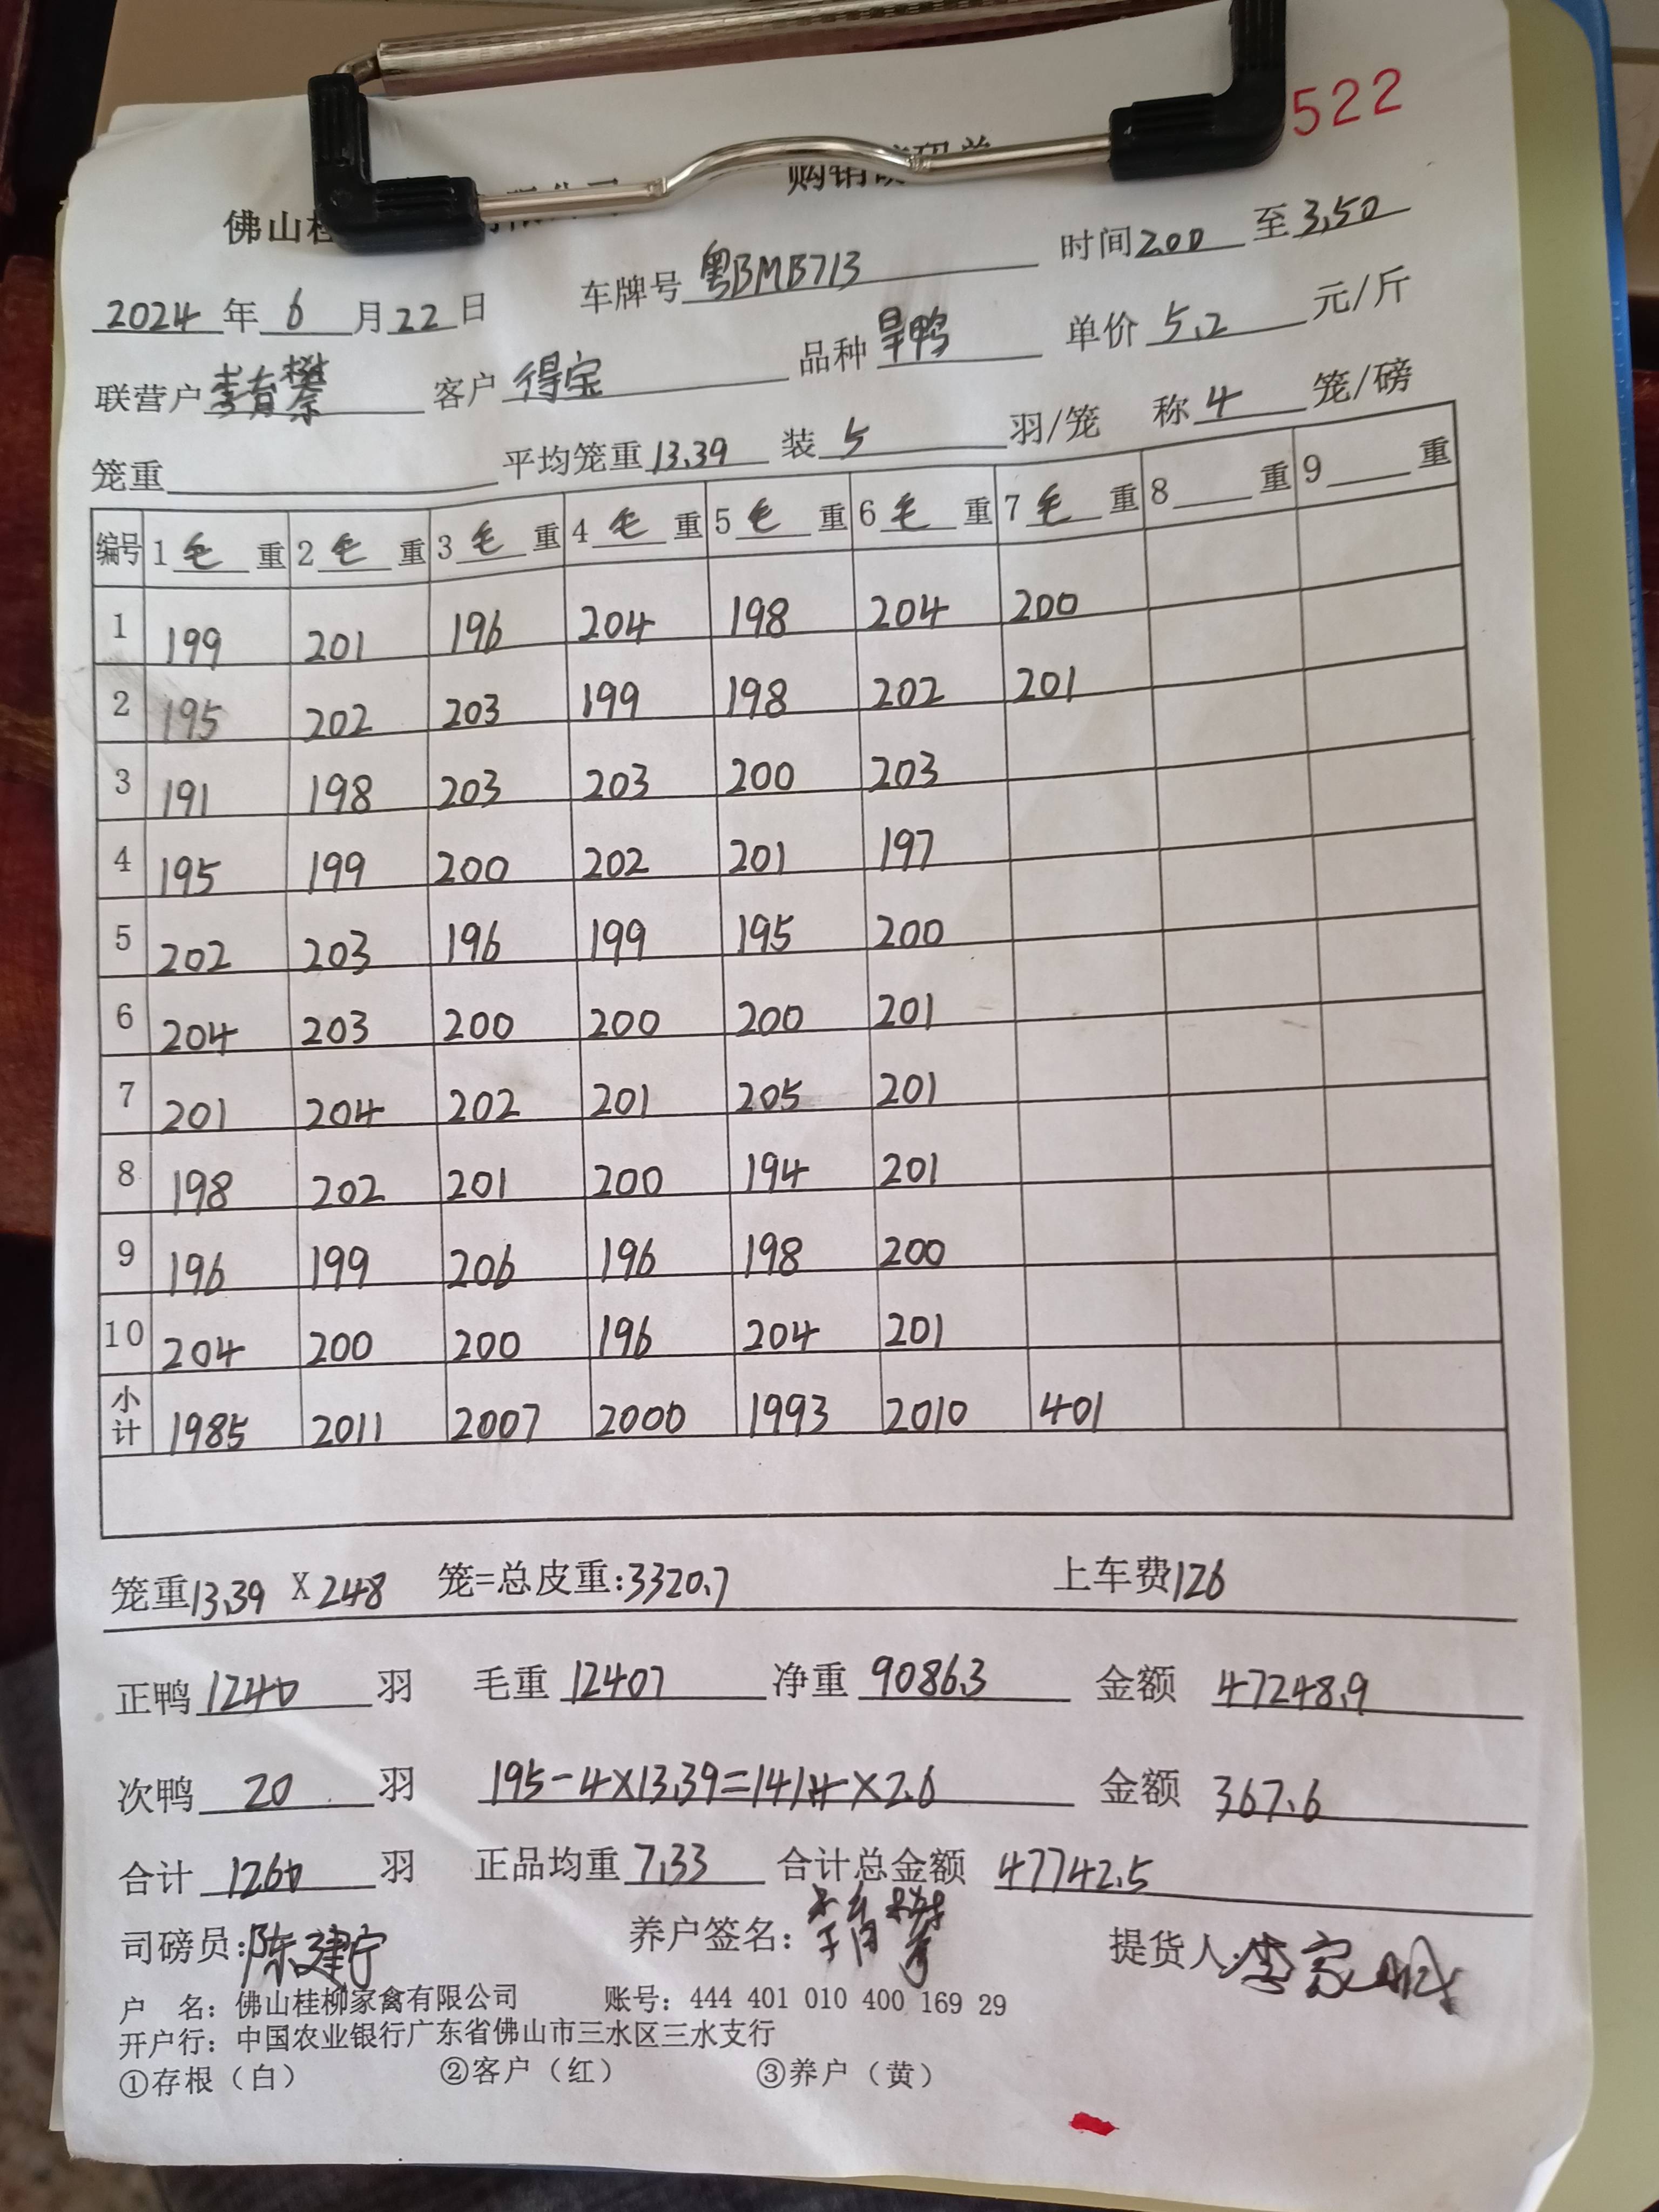 522
佛山桂
购销
2024年6月22日 车牌号 粤BMB713 时间2.00至3.50
联营户 李育攀 客户 得宝 品种 旱鸭 单价 5.2 元/斤
笼重 平均笼重13.39 装 5 羽/笼 称 4 笼/磅
编号 1毛重 2毛重 3毛重 4毛重 5毛重 6毛重 7毛重 8 重 9 重
1 199 201 196 204 198 204 200
2 195 202 203 199 198 202 201
3 191 198 203 203 200 203
4 195 199 200 202 201 197
5 202 203 196 199 195 200
6 204 203 200 200 200 201
7 201 204 202 201 205 201
8 198 202 201 200 194 201
9 196 199 206 196 198 200
10 204 200 200 196 204 201
小计 1985 2011 2007 2000 1993 2010 401
笼重13.39 X 248 笼=总皮重:3320.7 上车费126
正鸭 1240 羽 毛重 12407 净重 9086.3 金额 47248.9
次鸭 20 羽 195-4×13.39=141.4×2.6 金额 367.6
合计 1260 羽 正品均重 7.33 合计总金额 47742.5
司磅员:陈建宁 养户签名: 提货人:李家
户 名: 佛山桂柳家禽有限公司 账号: 444 401 010 400 169 29
开户行: 中国农业银行广东省佛山市三水区三水支行
①存根(白) ②客户(红) ③养户(黄)